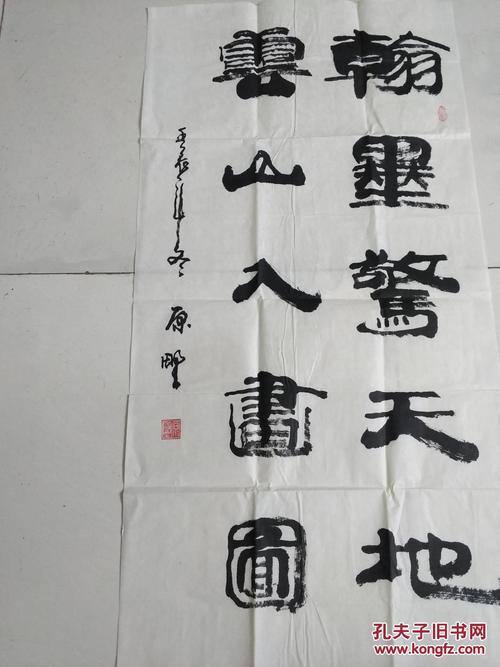 翰墨驚天地
雲山入畫圖
壬辰年冬 原野
孔夫子旧书网
www.kongfz.com